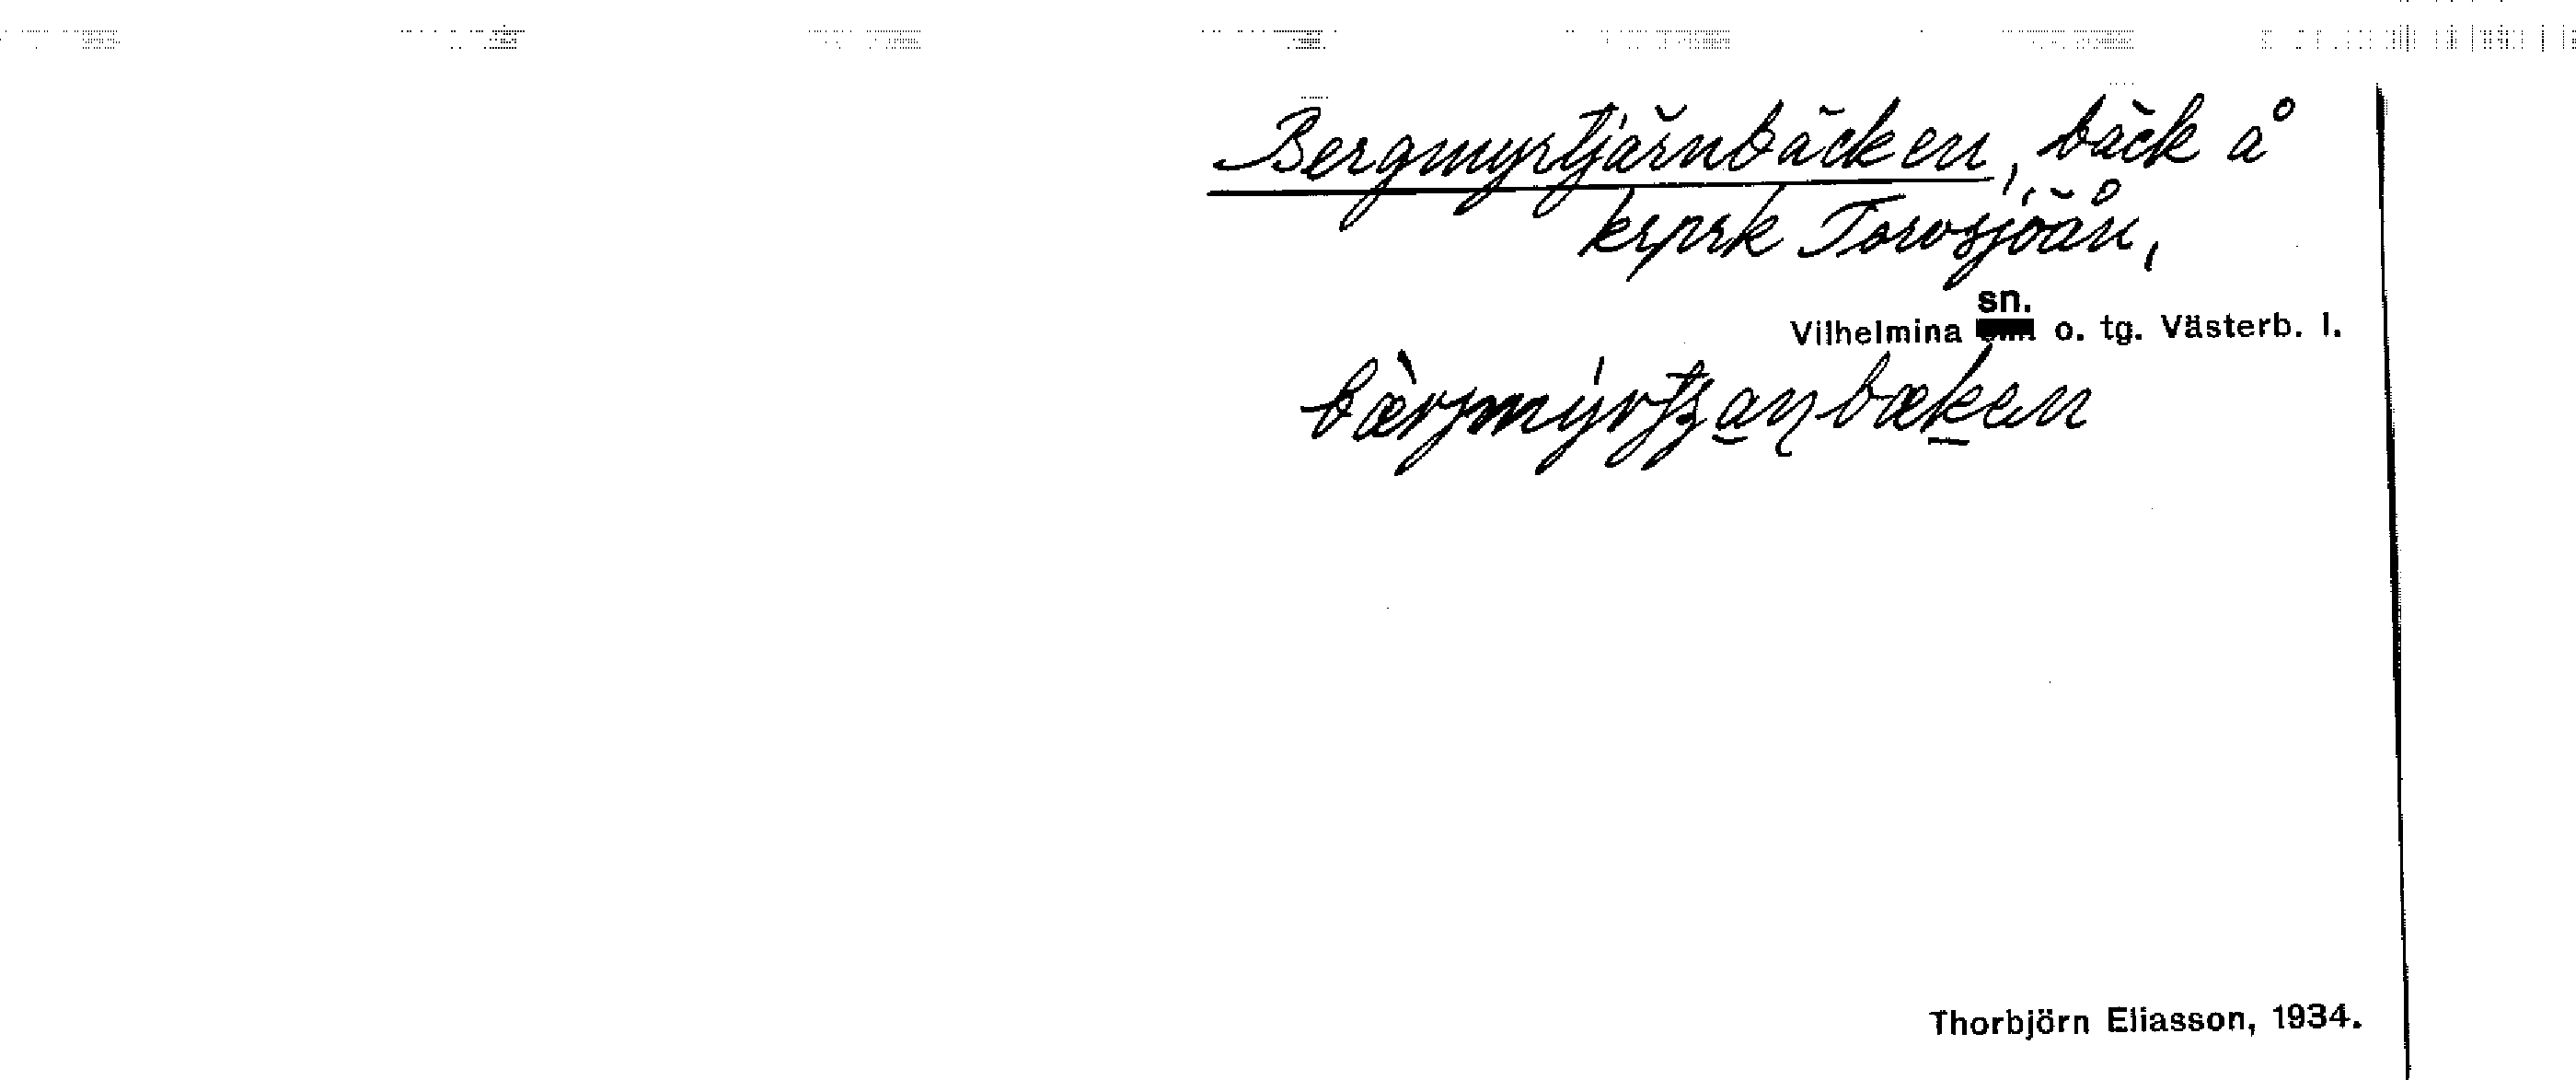 Bergmyrtjärnbäcken, bäck å
krprk Torvsjöån,
sn.
Vilhelmina o. tg. Västerb. l.
Thorbjörn Eliasson, 1934.